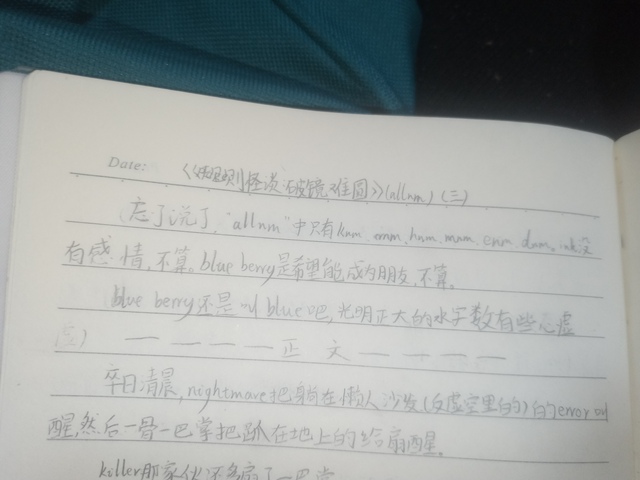 Date: 《规则怪谈:破镜难圆》(allnm) (三)
忘了说了,“allnm”中只有knm、emm、hnm、mnm、enm、dnm。ink没
有感情,不算。blue berry是希望能成为朋友,不算。
blue berry还是叫blue吧,光明正大的水字数有些心虚
————正 文————
卒日清晨,nightmare把躺在懒人沙发(反虚空里的)的error叫
醒,然后一骨一巴掌把趴在地上的给扇醒。
killer那家伙还多扇了一巴掌